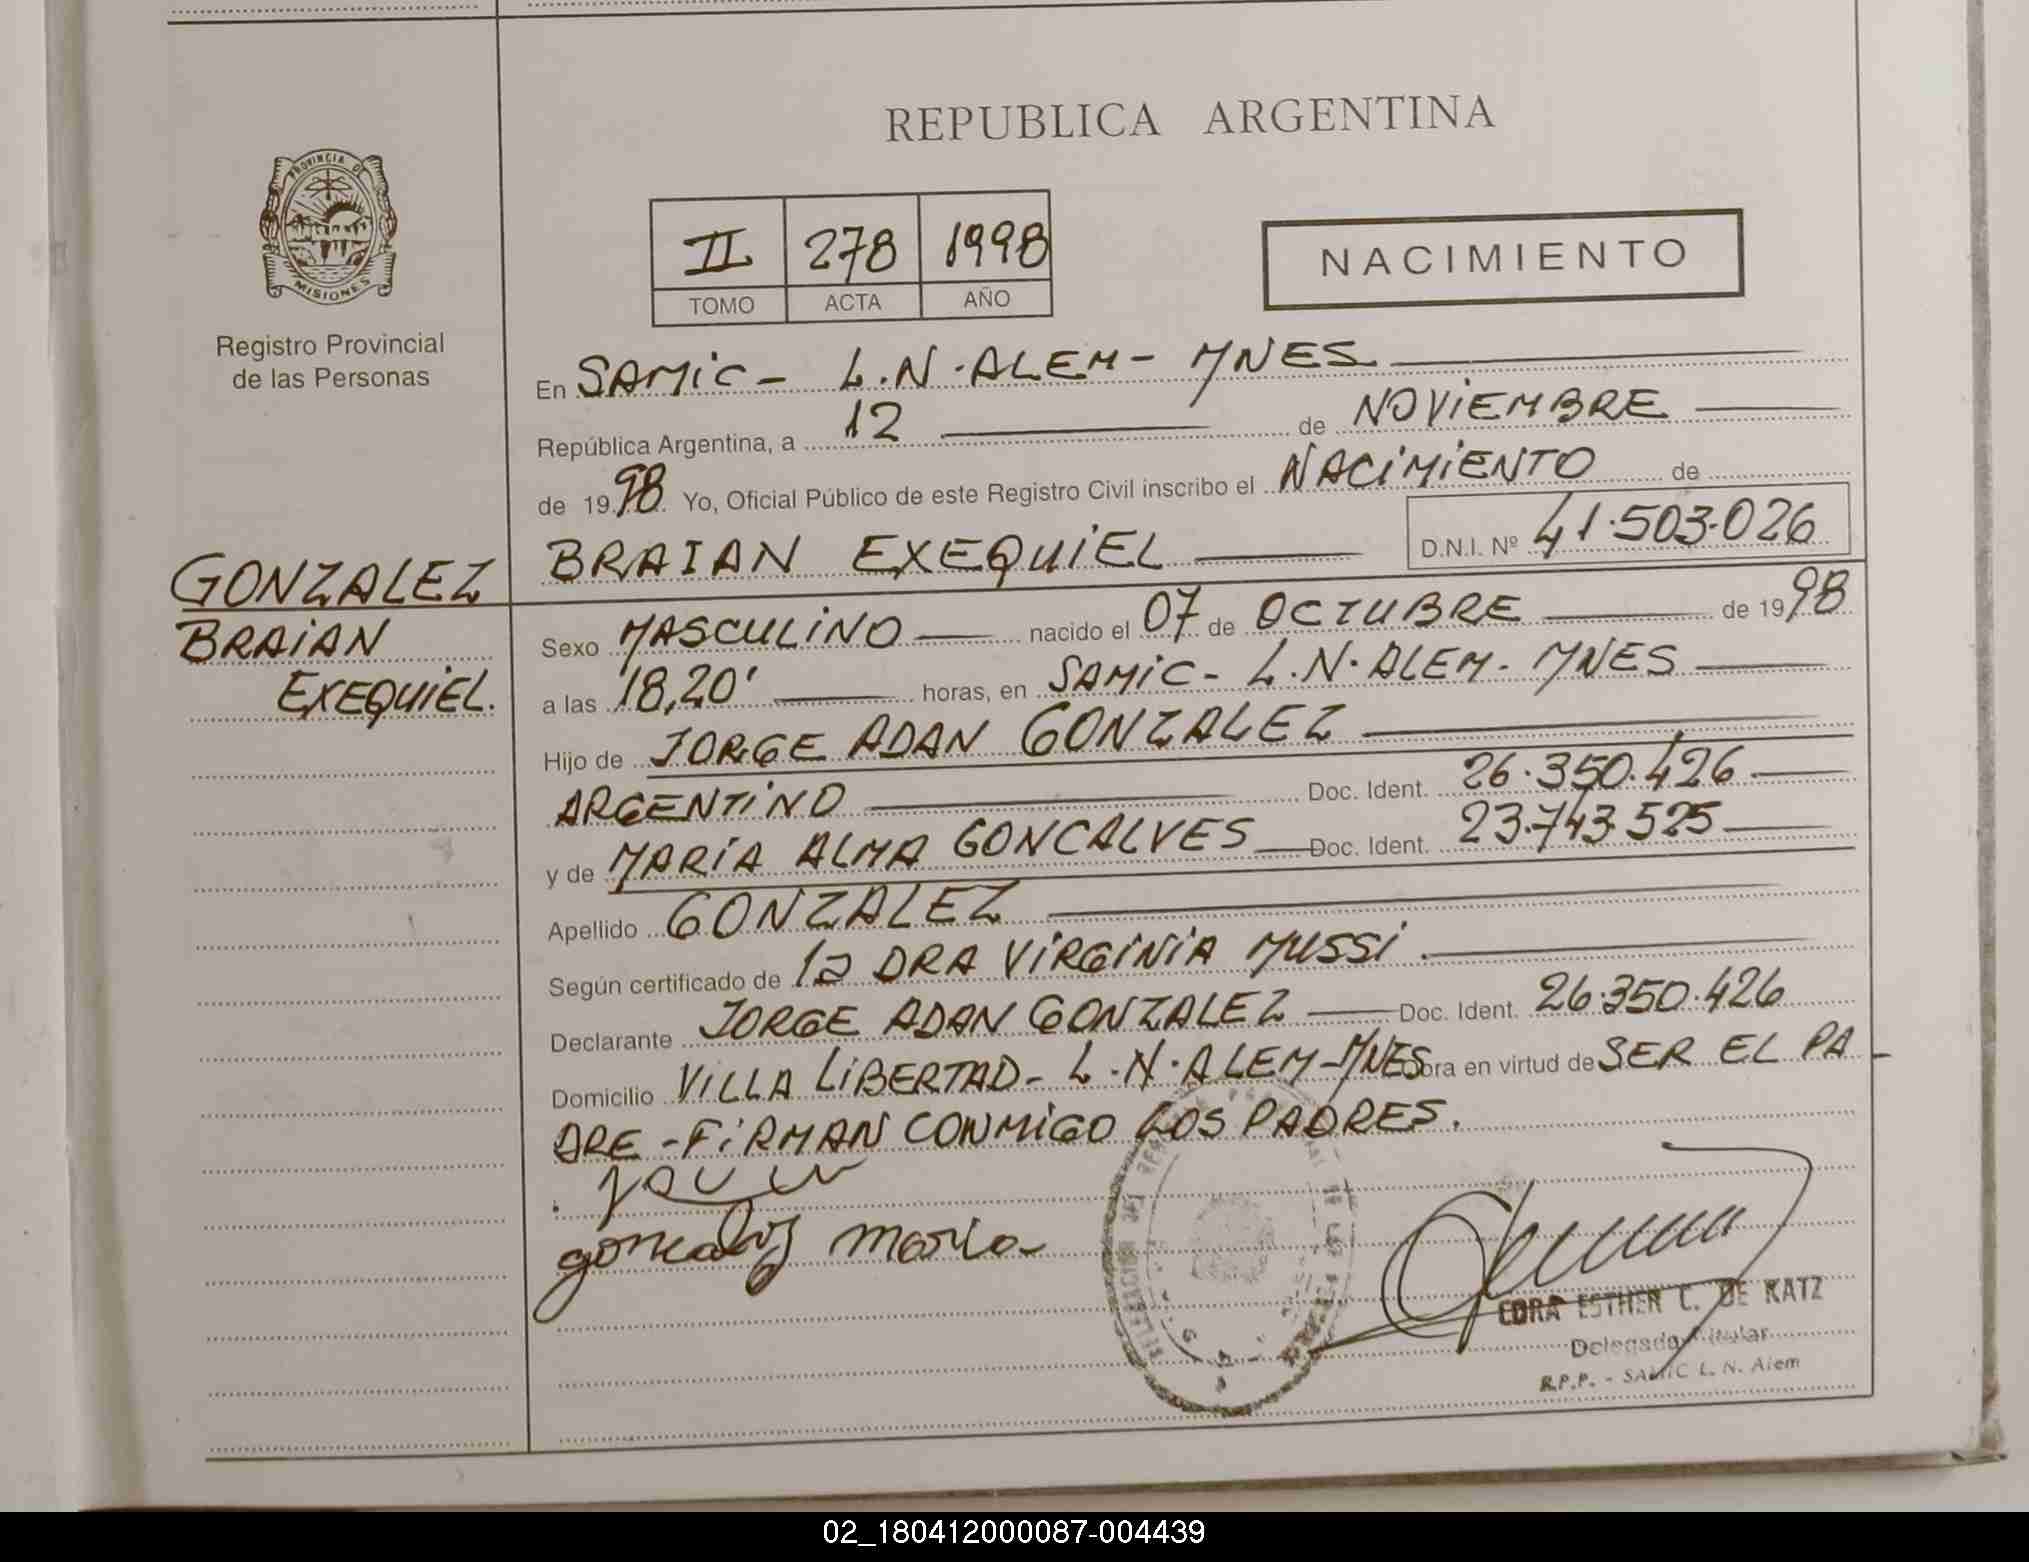 REPUBLICA ARGENTINA
PROVINCIA DE
MISIONES
Registro Provincial
de las Personas
II 278 1998
TOMO ACTA AÑO
NACIMIENTO
En SAMIC - L.N. ALEM - MNES
República Argentina, a 12 de NOVIEMBRE
de 1998 Yo, Oficial Público de este Registro Civil inscribo el NACIMIENTO de
BRAIAN EXEQUIEL D.N.I. Nº 41.503.026
GONZALEZ
BRAIAN
EXEQUIEL.
Sexo MASCULINO nacido el 07 de OCTUBRE de 1998
a las 18,20' horas, en SAMIC - L.N. ALEM - MNES
Hijo de JORGE ADAN GONZALEZ
ARGENTINO Doc. Ident. 26.350.426
y de MARIA ALMA GONCALVES Doc. Ident. 23.743.525
Apellido GONZALEZ
Según certificado de la DRA VIRGINIA MUSSI
Declarante JORGE ADAN GONZALEZ Doc. Ident. 26.350.426
Domicilio VILLA LIBERTAD - L.N. ALEM - MNES Obra en virtud de SER EL PA-
DRE - FIRMAN CONMIGO LOS PADRES.
goncalves Maria
CORA ESTHER C. DE KATZ
Delegada Titular
R.P.P. - SAMIC L. N. Alem
02_180412000087-004439